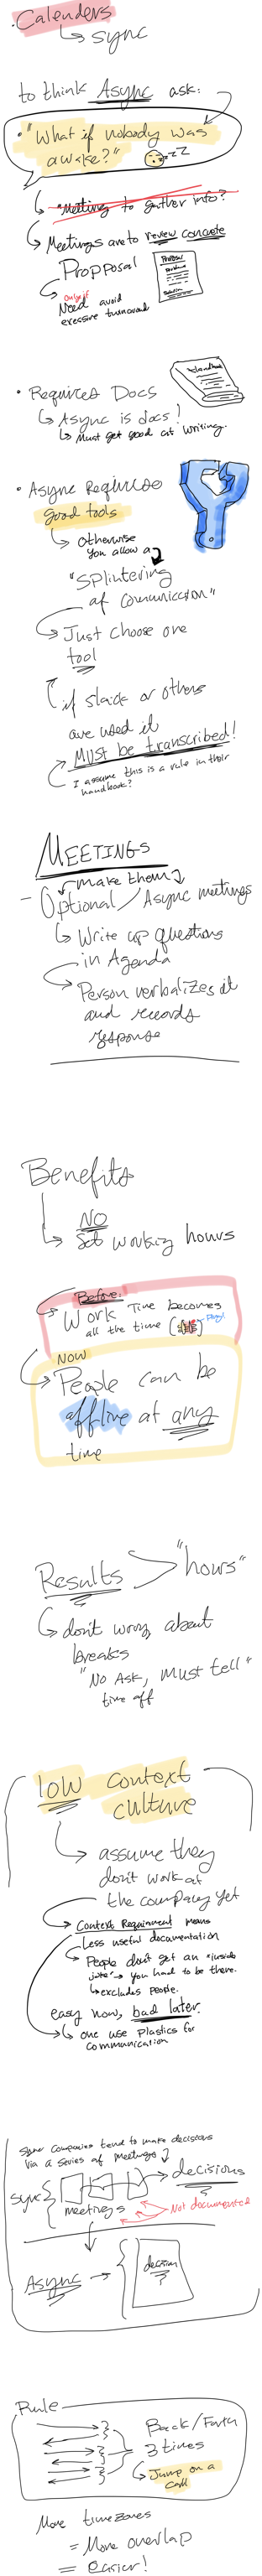 · Calenders
↳ sync
to think Async ask:
· "What if nobody was
awake?" zzZ
↳ "Meeting to gather info?
↳ Meetings are to review concrete
Propposal
Only if
Need avoid
excessive turnaround
Proposal
· Requires Docs
Handbook
↳ Async is docs!
↳ Must get good at writing.
· Async Requires
good tools
↳ otherwise
you allow a
"Splintering
of communiccation"
↳ Just choose one
tool
if slack or others
are used it
MUST be transcribed!
I assume this is a rule in their
handbook?
MEETINGS
make them
- Optional / Async meetings
↳ Write up questions
in Agenda
↳ Person verbalizes it
and records
response
Benefits
NO
↳ Set working hours
Before:
→ Work Time becomes
all the time
NOW
→ People can be
offline at any
time
Results > "hours"
↳ don't worry about
breaks
"No Ask, must tell"
time off
low context
culture
↳ assume they
don't work at
the company yet
→ Context Requirment means
Less useful documentation
↳ People don't get an "inside
joke" → you had to be there.
↳ excludes people.
easy now, bad later.
↳ one use plastics for
communication
Sync companies tend to make decisions
via a series of meetings
Sync { → decisions
meetings
Not documented
Async → { decision
Rule
Back/Forth
3 times
↳ Jump on a
call
More timezones
= More overlap
= easier!